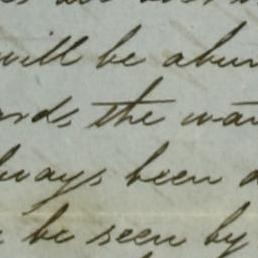 will be abun
ards, the wa
lways been d
be seen by